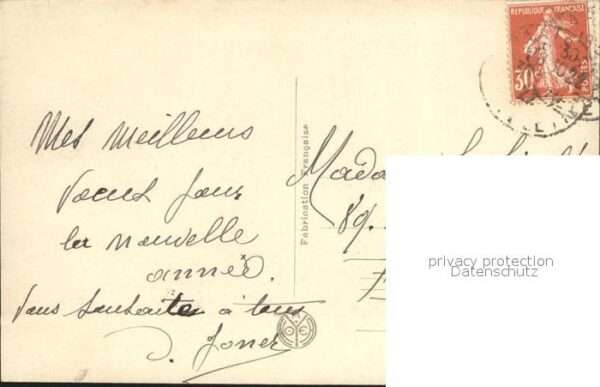 Mes meilleurs
vœux pour
la nouvelle
année.
Vous souhaite à tous
REPUBLIQUE FRANÇAISE
30
POSTES
Fabrication Française
89.
privacy protection
Datenschutz